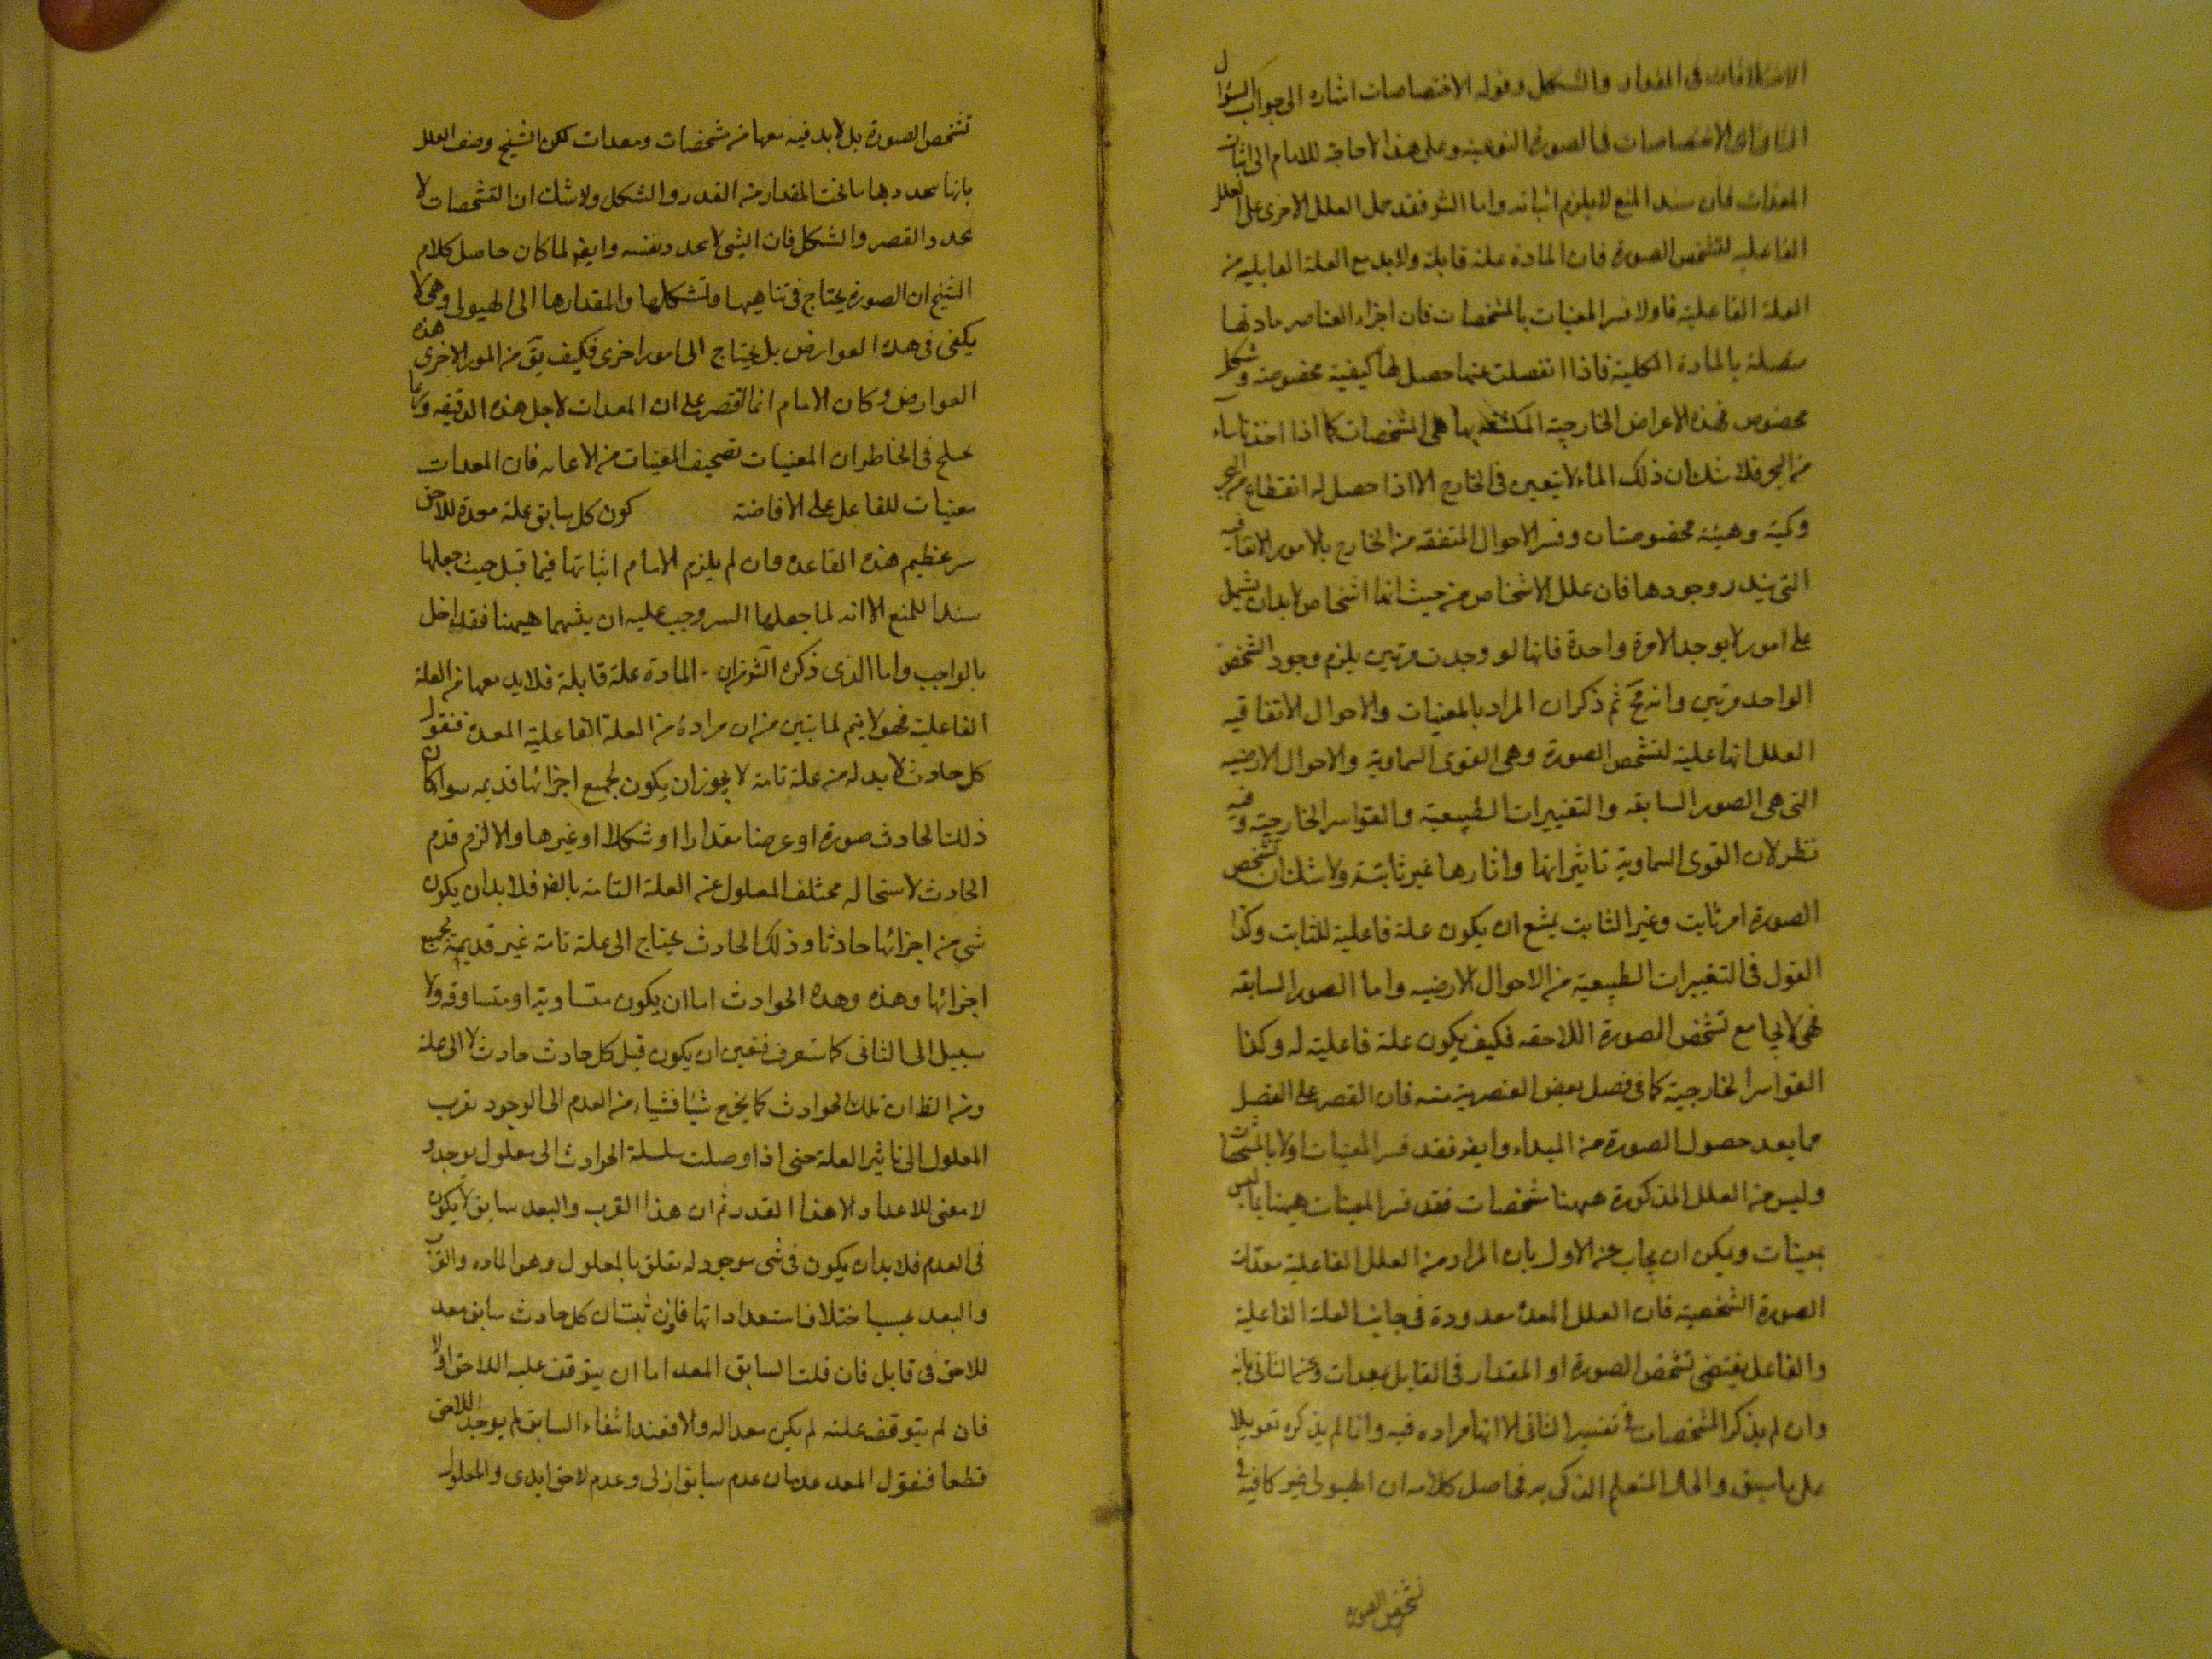 الاختلافات فى المقدار والشكل وقوله الاختصاصات اشاره الى جواب السؤال
الاختصاصات فى الصورة النوعية وعلى هذا لا حاجة للامام الى اثبات
المعدات فان سند المنع لا يلزم اثباته واما الشر فقد حمل العلل الاخرى على العلل
الفاعليه لتشخص الصورة فان المادة علة قابلة ولا بد مع العلة القابلية من
العلة الفاعلية فاولا فسر المعنيات بالمشخصات فان اجزاء العناصر مادتها
متصلة بالمادة الكلية فاذا انفصلت عنها حصل لها كيفية مخصوصة وشكل
مخصوص فهذه الاعراض الخارجية المكتنفة بها هى المشخصات كما اذا اخذنا ماء
من البحر فلا شك ان ذلك الماء لا يتعين فى الخارج الا اذا حصل له انقطاع من البحر
وكمية وهيئة مخصوصتان وفسر الاحوال المتفقه من الخارج بالامور الاتفاقيه
التى يندر وجودها فان علل الاشخاص من حيث انها اشخاص لا بد ان يشتمل
على امور لا يوجد الا مرة واحدة فانها لو وجدت مرتين يلزم وجود الشخص
الواحد مرتين وانه مح ثم ذكر ان المراد بالمعنيات والاحوال الاتفاقيه
العلل الفاعلية لتشخص الصورة وهى القوى السماوية والاحوال الارضيه
التى هى الصور السابقه والتغييرات الطبيعية والقواسر الخارجية وفيه
نظر لان القوى السماوية تاثيراتها واثارها غير ثابتة ولا شك ان تشخص
الصورة امر ثابت وغير الثابت يمتنع ان يكون علة فاعلية للثابت وكذا
القول فى التغييرات الطبيعية من الاحوال الارضيه واما الصور السابقه
فهى لا يجامع تشخص الصورة اللاحقه فكيف يكون علة فاعلية له وكذا
القواسر الخارجية كما فى فصل بعض العنصرية منه فان القصر على الفصل
مما بعد حصول الصورة من المبداء وايض فقد فسر المعنيات اولا بالمشخصات
وليس من العلل المذكورة ههنا مشخصات فقد فسر المعينات ههنا بما ليس
بمعينات ويمكن ان يجاب عن الاول بان المراد من العلل الفاعلية معدات
الصورة الشخصية فان العلل المعدة معدودة فى جانب العلة الفاعلية
والفاعل يقتضى تشخص الصورة او المقدار فى القابل بمعدات وعن الثانى بانه
وان لم يذكر المشخصات فى تفسير الثانى الا انها مراده فيه وانما لم يذكره تعويلا
على ما سبق المتعلم الذكى به فحاصل كلامه ان الهيولى غير كافية فى
تشخص الصورة
تشخص الصورة بل لا بد فيه معها من مشخصات ومعدات لكن الشيخ وصف العلل
بانها تحدد بها ما تحت المقدار من القدر والشكل ولا شك ان التشخصات لا
تحدد القصر والشكل فان الشى لا يحدد بنفسه وايض لما كان حاصل كلام
الشيخ ان الصورة يحتاج فى تناهيها وتشكلها والمقدارها الى الهيولى وهى لا
يكفى فى هذه العوارض بل يحتاج الى امور اخرى فكيف يق من المور الاخرى هذه
العوارض وكان الامام انما اقتصر على ان المعدات لاجل هذه الدقيقه وربما
يحلج فى الخاطر ان المعنيات تصحيف المعينات من الاعانه فان المعدات
معنيات للفاعل على الافاضة كون كل سابق علة معدة للاحق
سر عظيم هذه القاعدة فان لم يلزم الامام اثباتها فيما قبل حيث جعلها
سندا للمنع الا انه لما جعلها السر وجب عليه ان يثبتها ههنا فقد اخل
بالواجب واما الذى ذكره الشر من ان المادة علة قابلة فلا بد معها من العلة
الفاعلية فهو لا يتم لما تبين من ان مراده من العلة الفاعلية المعدة فنقول
كل حادث لا بد له من علة تامة لا يجوز ان يكون لجميع اجزائها قديمه سواء كان
ذلك الحادث صورة او عرضا مقدارا او شكلا او غيرها والا لزم قدم
الحادث لاستحاله تخلف المعلول عن العلة التامة بالضر فلا بد ان يكون
شى من اجزائها حادثا وذلك الحادث يحتاج الى علة تامة غير قديمة بجميع
اجزائها وهذه وهذه الحوادث اما ان يكون متساوية او متساوقه ولا
سبيل الى الثانى كما ستعرف فتعين ان يكون قبل كل حادث حادث لا الى علة
ومن الظ ان تلك الحوادث كما يخرج شيئا فشياء من العدم الى الوجود تقرب
المعلول الى تاثير العلة حتى اذا وصلت سلسلة الحوادث الى معلول يوجد و
لا معنى للاعداد الا هذا القدر ثم ان هذا القرب والبعد سابق لا يكون
فى العدم فلا بد ان يكون فى شى موجود له تعلق بالمعلول وهو المادة والقرب
والبعد بحسب اختلاف استعداداتها فاذن ثبت ان كل حادث سابق معد
للاحق فى قابل فان قلت السابق المعد اما ان يتوقف عليه اللاحق اولا
فان لم يتوقف عليه لم يكن معدا له والا فعند انتفاء السابق لم يوجد اللاحق
قطعا فنقول المعد عدمان عدم سابق ازلى وعدم لاحق ابدى والمعلول